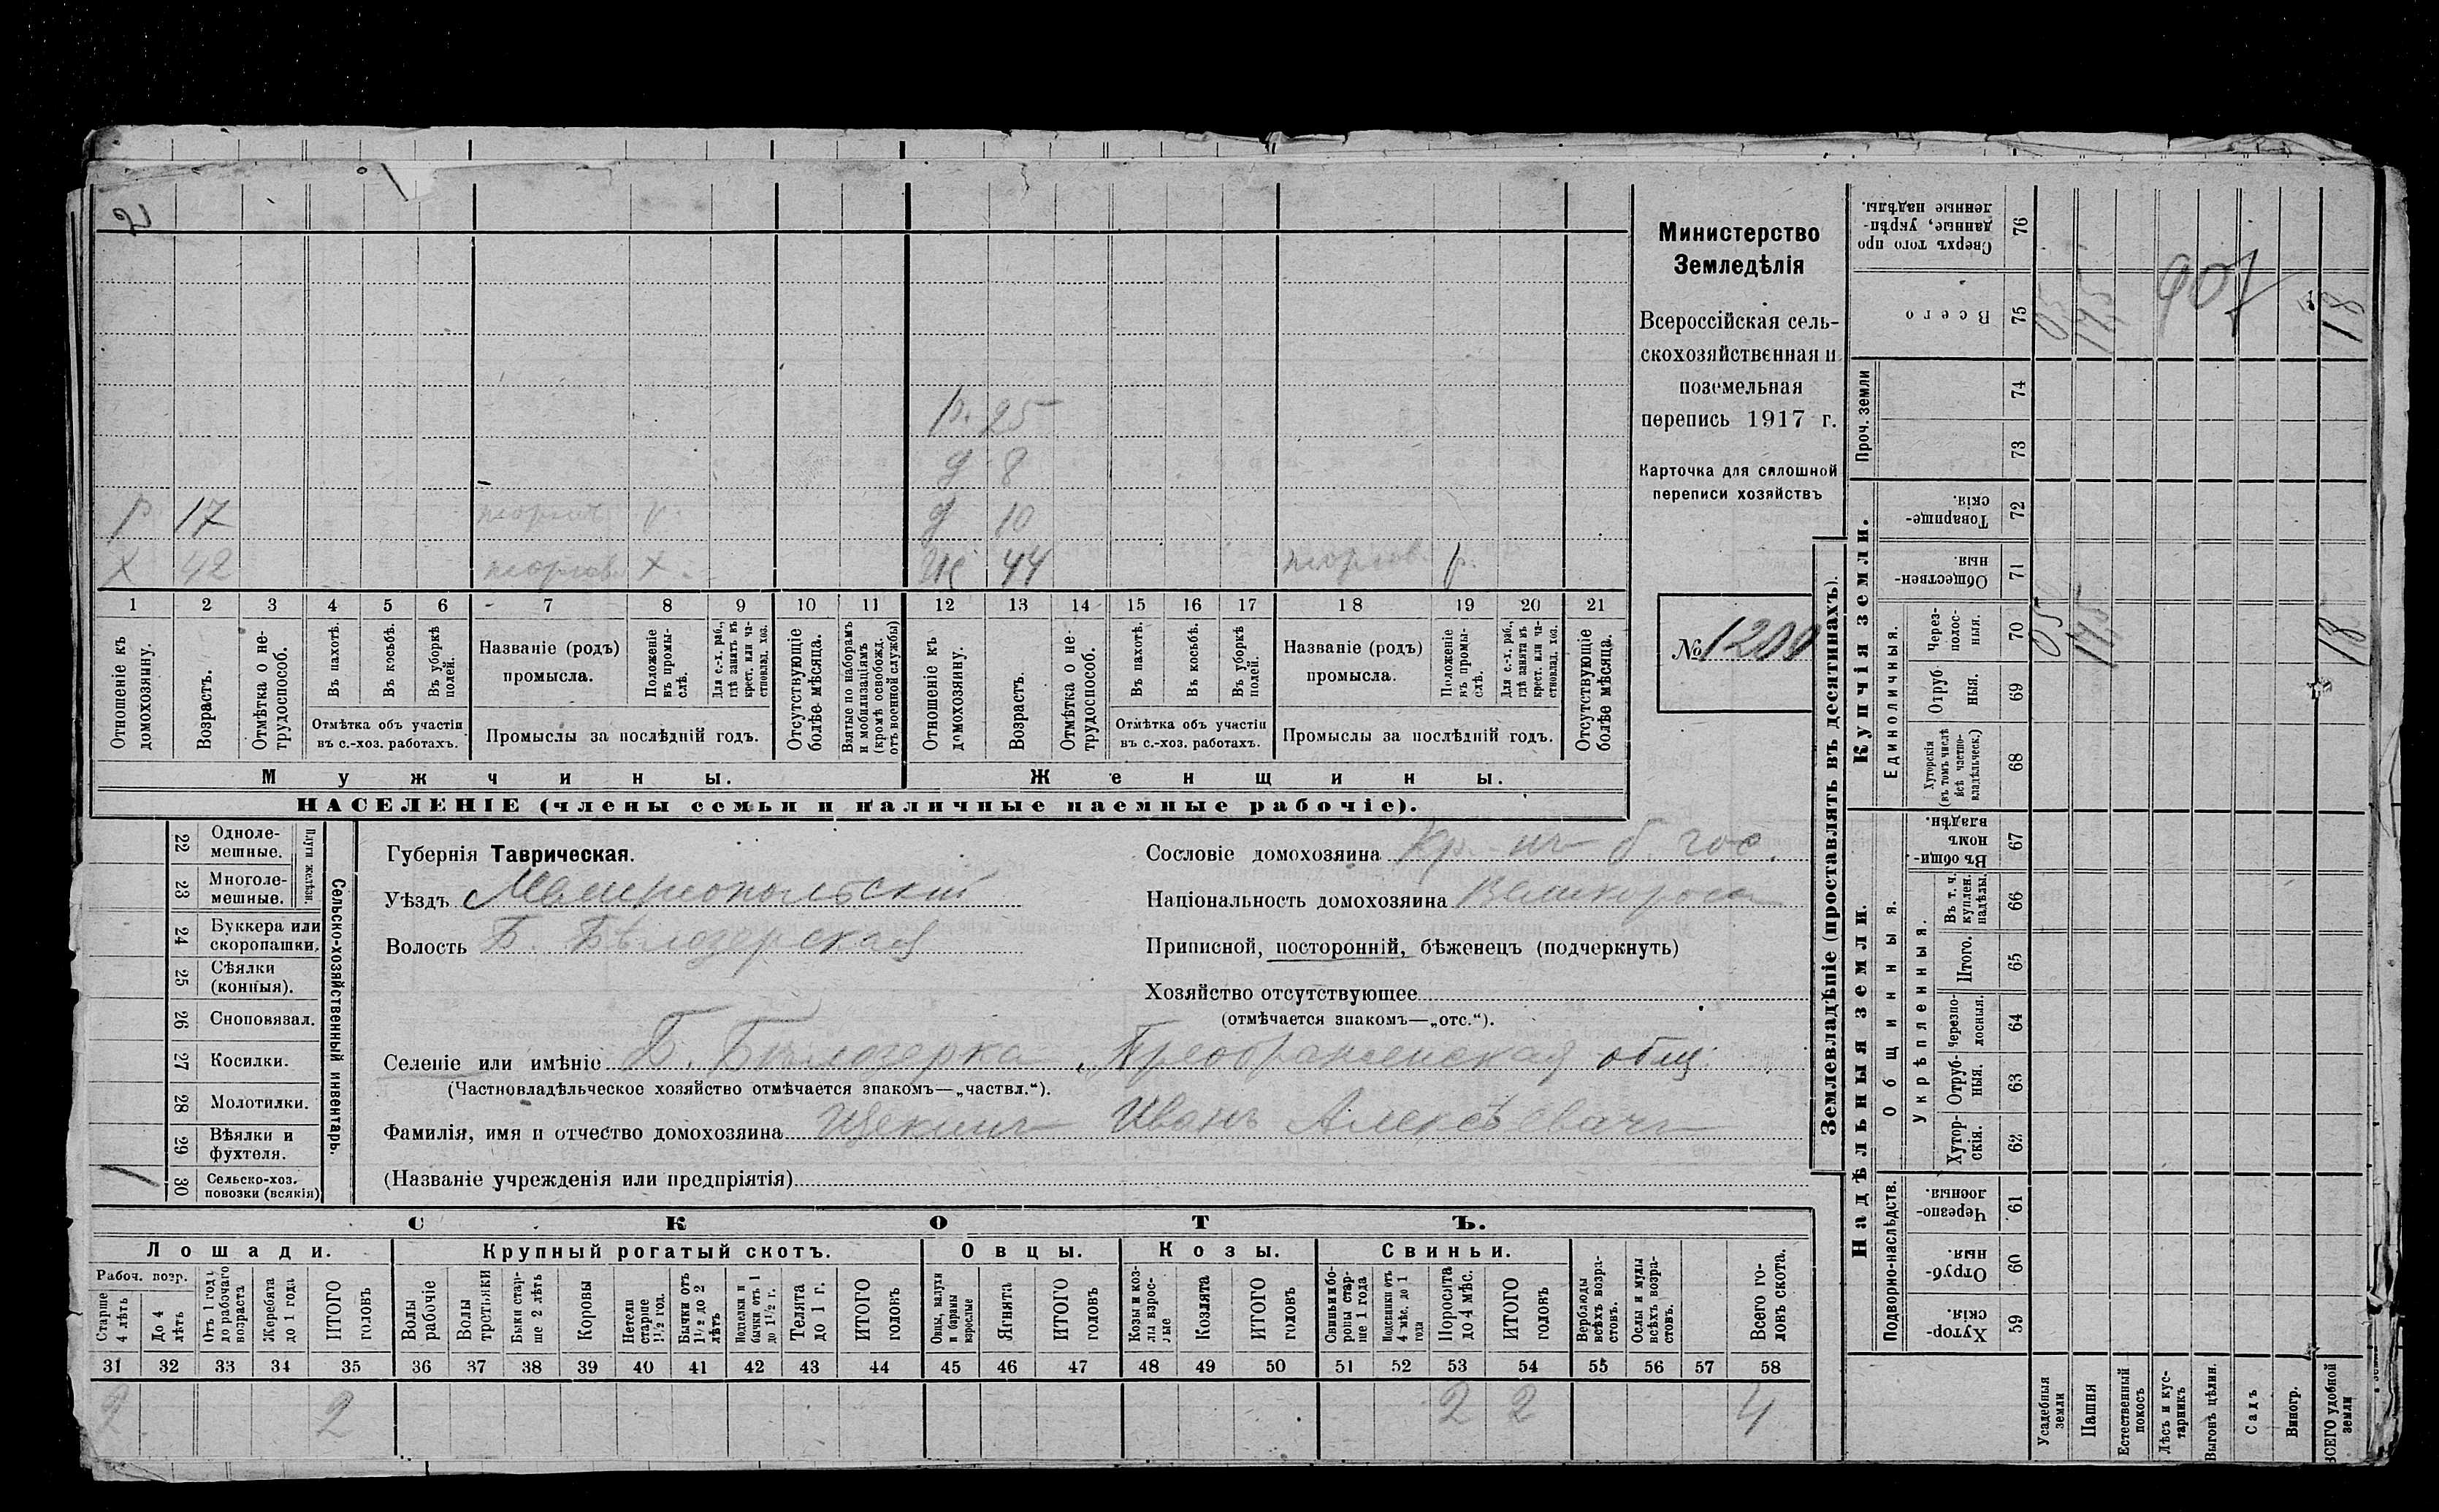 2
р. 25
д 8
р 17 торгов. р. д 10
х 42 торгов. х. ж 44 торгов. р.
1 2 3 4 5 6 7 8 9 10 11 12 13 14 15 16 17 18 19 20 21
Отношеніе къ домохозяину.
Возрастъ.
Отмѣтка о не-трудоспособ.
Въ пахотѣ.
Въ косьбѣ.
Въ уборкѣ полей.
Отмѣтка объ участіи
въ с.-хоз. работахъ.
Названіе (родъ)
промысла.
Положеніе въ промы-слѣ.
Для с.-х. раб., гдѣ занятъ въ крест. или ча-стновлад. хоз.
Промыслы за послѣдній годъ.
Отсутствующіе болѣе мѣсяца.
Взятые по наборамъ и мобилизаціямъ (кромѣ освобожд. отъ военной службы)
Отношеніе къ домохозяину.
Возрастъ.
Отмѣтка о не-трудоспособ.
Въ пахотѣ.
Въ косьбѣ.
Въ уборкѣ полей.
Отмѣтка объ участіи
въ с.-хоз. работахъ.
Названіе (родъ)
промысла.
Положеніе въ промы-слѣ.
Для с.-х. раб., гдѣ занята въ крест. или ча-стновлад. хоз.
Промыслы за послѣдній годъ.
Отсутствующіе болѣе мѣсяца.
Мужчины. Женщины.
НАСЕЛЕНІЕ (члены семьи и наличные наемные рабочіе).
Министерство
Земледѣлія
Всероссійская сель-
скохозяйственная и
поземельная
перепись 1917 г.
Карточка для сплошной
переписи хозяйствъ
№ 1200
22 Одноле-мешные.
23 Многоле-мешные.
Плуги желѣзн.
24 Буккера или скоропашки.
25 Сѣялки (конныя).
26 Сноповязал.
27 Косилки.
28 Молотилки.
29 Вѣялки и фухтеля.
30 Сельско-хоз. повозки (всякія) 1
Сельско-хозяйственный инвентарь.
Губернія Таврическая.
Уѣздъ Мелитопольскій
Волость Б. Бѣлозерская
Сословіе домохозяина Кр.-нъ б. гос.
Національность домохозяина Великоросъ
Приписной, посторонній, бѣженецъ (подчеркнуть)
Хозяйство отсутствующее
(отмѣчается знакомъ—„отс.“).
Селеніе или имѣніе Б. Бѣлозерка, Преображенская общ.
(Частновладѣльческое хозяйство отмѣчается знакомъ—„частвл.“).
Фамилія, имя и отчество домохозяина Щекинъ Иванъ Алексѣевичъ
(Названіе учрежденія или предпріятія)
СКОТЪ.
Лошади. Крупный рогатый скотъ. Овцы. Козы. Свиньи.
Рабоч. возр.
Старше 4 лѣтъ
До 4 лѣтъ
Отъ 1 года до рабочаго возраста
Жеребята до 1 года
ИТОГО головъ
Волы рабочіе
Волы третьяки
Быки стар-ше 2 лѣтъ
Коровы
Нетели старше 1½ год.
Бычки отъ 1½ до 2 лѣтъ
Подтелки и бычки отъ 1 до 1½ г.
Телята до 1 г.
ИТОГО головъ
Овцы, валухи и бараны взрослые
Ягнята
ИТОГО головъ
Козы и коз-лы взрос-лые
Козлята
ИТОГО головъ
Свиньи и бо-ровы стар-ше 1 года
Подсвинки отъ 4 мѣс. до 1 года
Поросята до 4 мѣс.
ИТОГО головъ
Верблюды всѣхъ возра-стовъ.
Ослы и мулы всѣхъ возра-стовъ.
Всего го-ловъ скота.
31 32 33 34 35 36 37 38 39 40 41 42 43 44 45 46 47 48 49 50 51 52 53 54 55 56 57 58
2 2 2 2 4
Землевладѣніе (проставлять въ десятинахъ).
Сверхъ того про-данные, укрѣп-ленные надѣлы. 76
Всего 75 05 175 907 18
Проч. земли 74
73
Купчія земли.
Товарище-скія. 72
Обществен-ныя. 71
Единоличныя.
Через-полос-ныя. 70 05 175 18
Отруб-ныя. 69
Хуторскія (въ томъ числѣ всѣ частно-владѣльческ.) 68
Надѣльныя земли.
Общинныя.
Въ общи-номъ владѣн. 67
Укрѣпленныя.
Въ т. ч. куплен. надѣлы. 66
Итого. 65
Черезпо-лосныя. 64
Отруб-ныя. 63
Хутор-скія. 62
Подворно-наслѣдств.
Черезпо-лосныя. 61
Отруб-ныя. 60
Хутор-скія. 59
Усадебныя земли
Пашня
Естественный покосъ
Лѣсъ и кус-тарникъ
Выгонъ цѣлин.
Садъ
Виногр.
ВСЕГО удобной земли